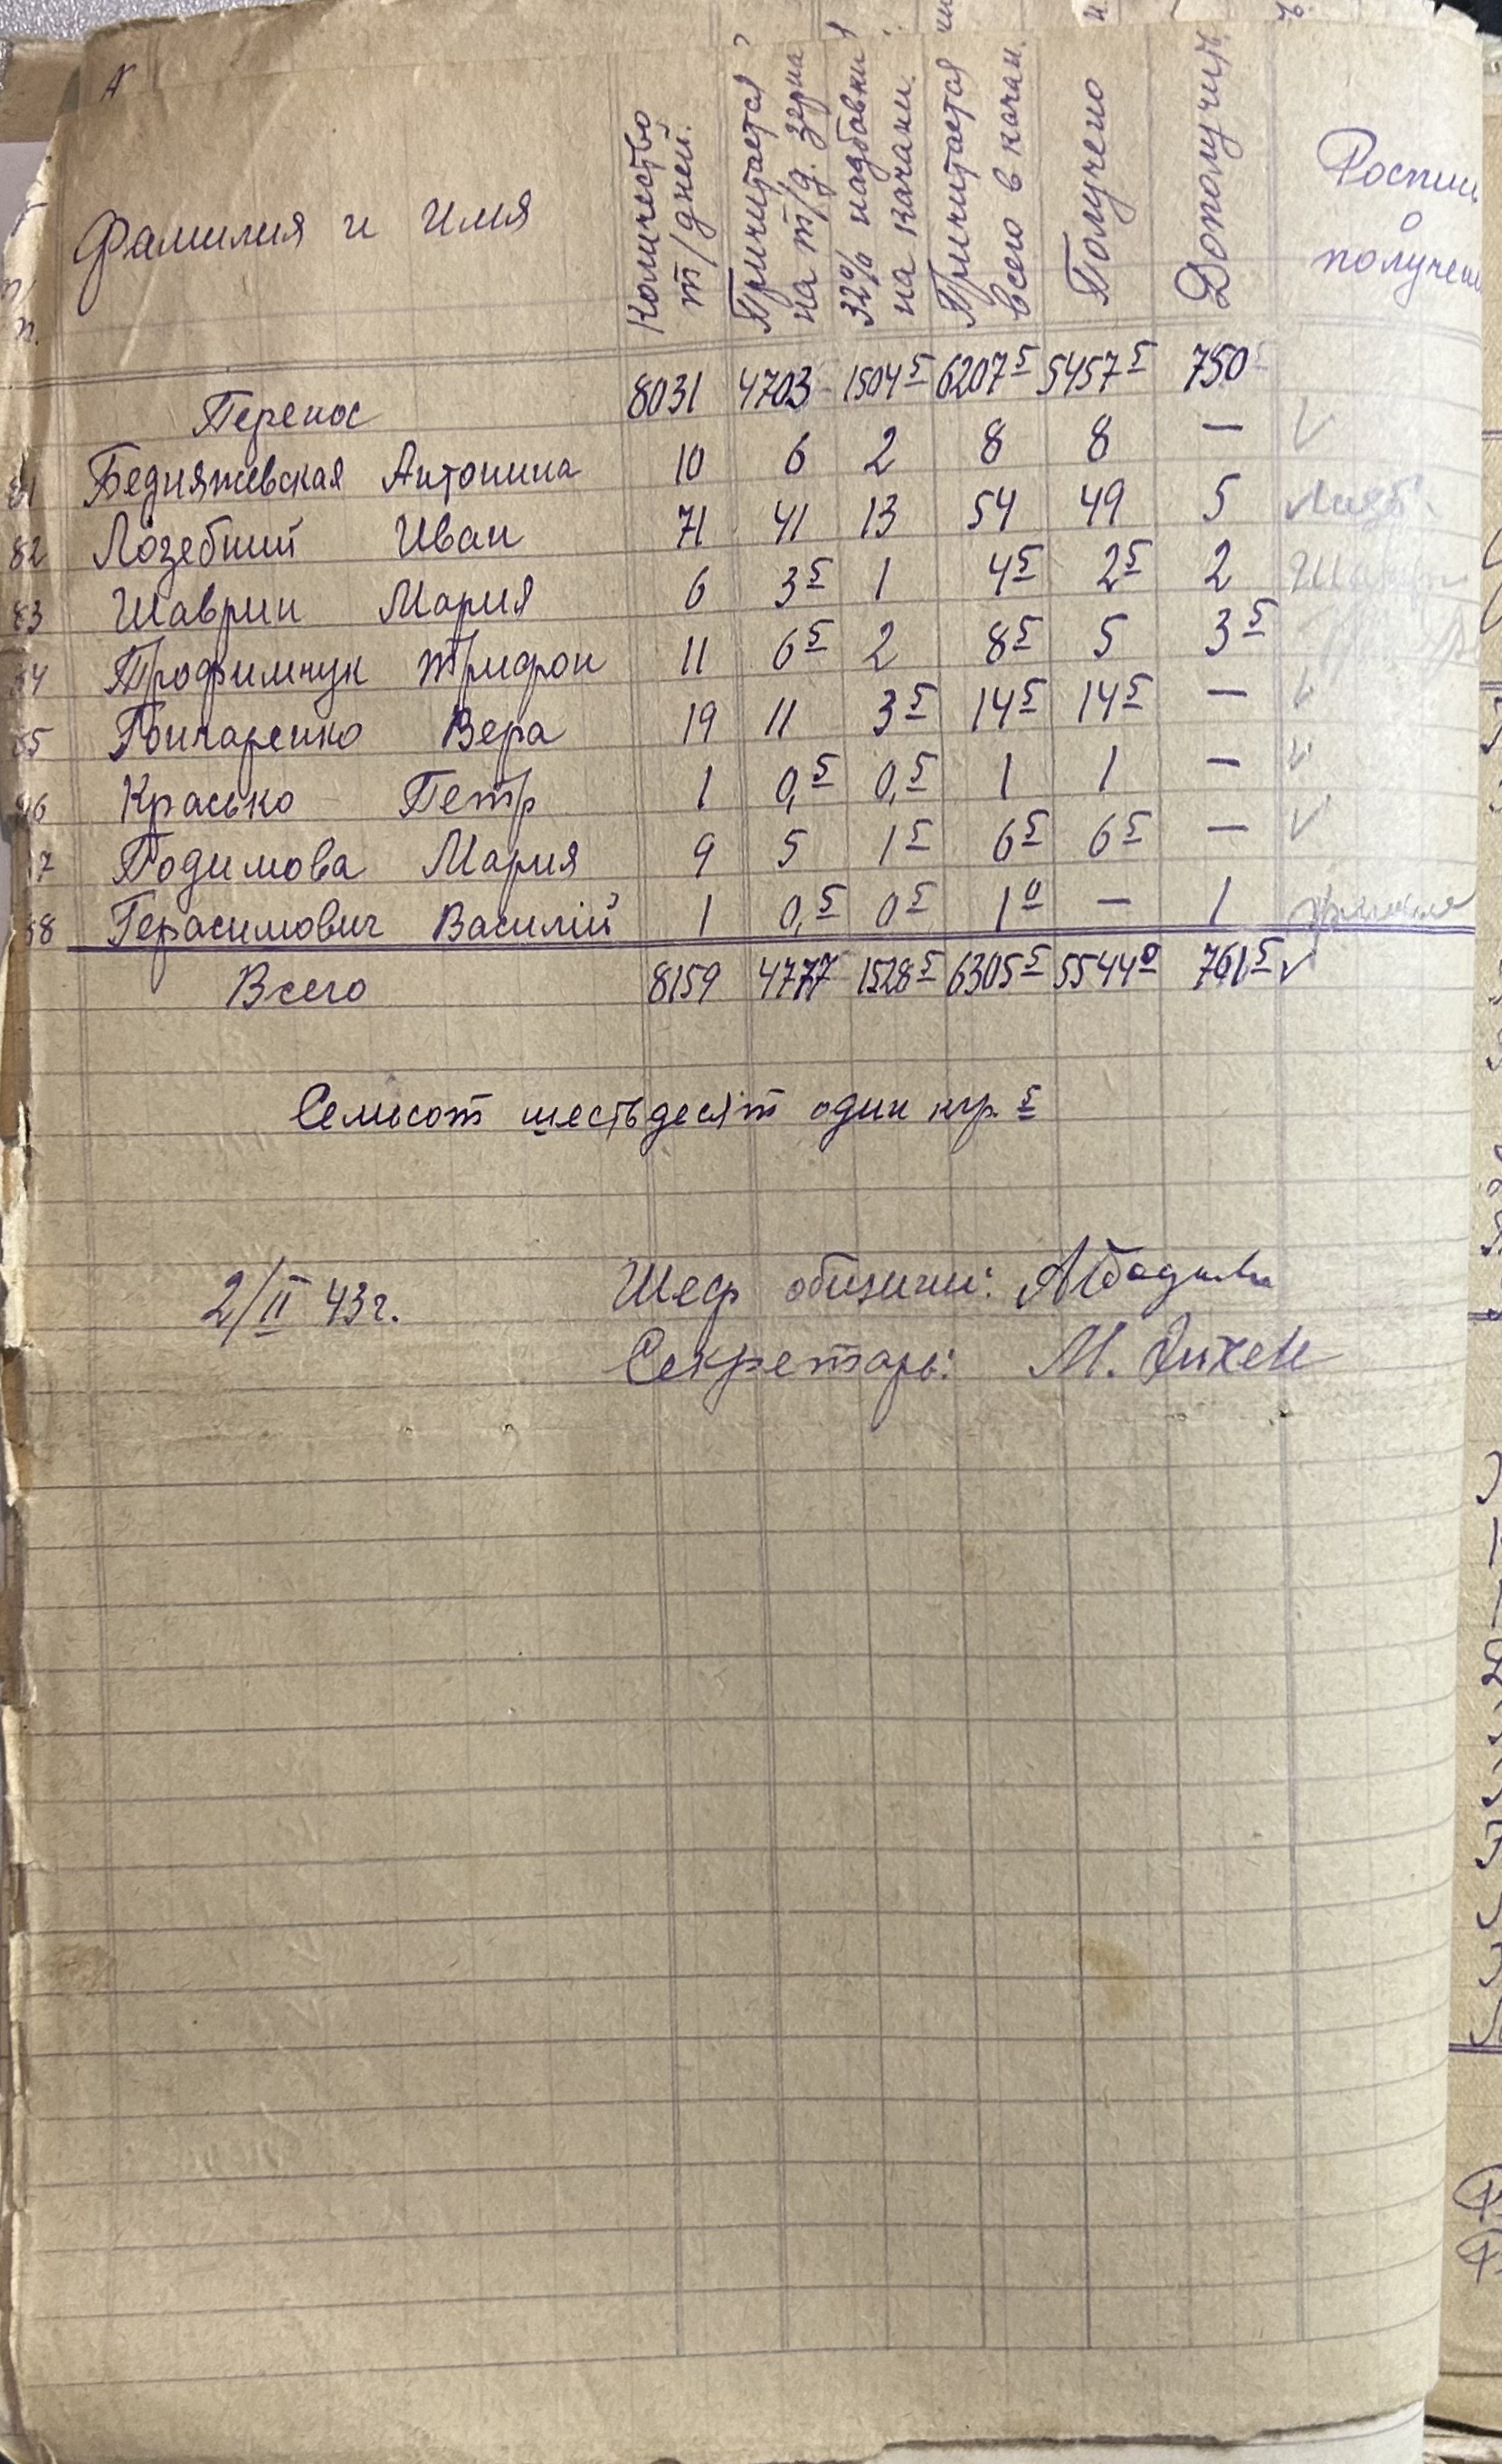 п/п. Фамилия и имя Количество т/дней. Причитается на т/д. зерна 32% надбавки на качани. Причитается всего в качан. Получено Дополучить Роспись о получении
Перенос 8031 4703 1504 5 6207 5 5457 5 750
81 Бедняжевская Антонина 10 6 2 8 8 — V
82 Лозебний Иван 71 41 13 54 49 5
83 Шаврин Мария 6 3 5 1 4 5 2 5 2
84 Трофимчук Трифон 11 6 5 2 8 5 5 3 5
85 Гончаренко Вера 19 11 3 5 14 5 14 5 — V
86 Красько Петр 1 0,5 0,5 1 1 — V
87 Подимова Мария 9 5 1 5 6 5 6 5 — V
88 Герасимович Василий 1 0,5 0 5 1 0 — 1
Всего 8159 4777 1528 5 6305 5 5544 0 761 5 V
Семьсот шестьдесят один кгр. 5
2/II 43 г. Шеф общины:
Секретарь: М.